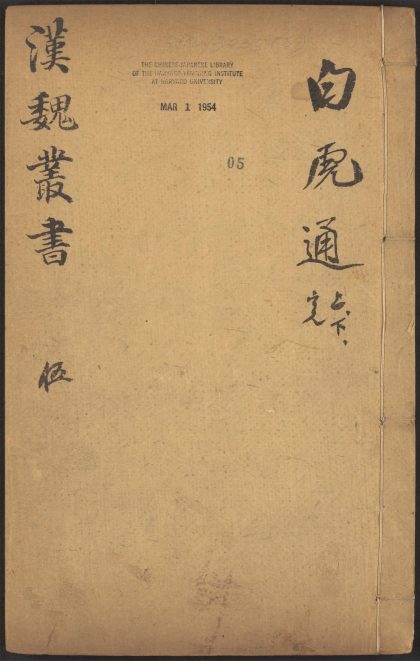 白虎通
上下、
完
漢魏叢書
伍
THE CHINESE-JAPANESE LIBRARY
OF THE HARVARD-YENCHING INSTITUTE
AT HARVARD UNIVERSITY
MAR 1 1954
05